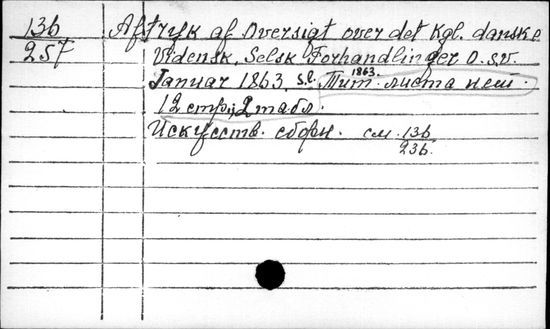 13б Aftryk af Oversigt over det Kgl. danske
257 Vidensk. Selsk Forhandlinger o.sv.
Januar 1863. s.l. 1863. Тит. листа нет.
12 стр., 2 табл.
Искусств. сборн. см. 13б
23б.